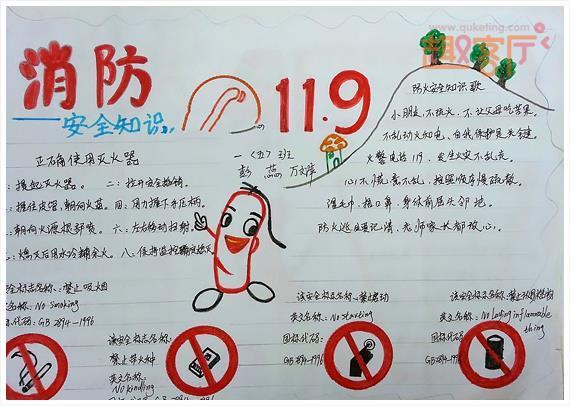 www.quketing.com
趣客厅
消防
安全知识
11.9
防火安全知识歌
小朋友,不玩火,不让父母吃苦果。
不乱动火和电,自我保护是关键。
火警电话119,发生火灾不乱走。
心不慌意不乱,按照顺序慢疏散。
湿毛巾,捂口鼻,身体前屈头部地。
防火逃生要记清,老师家长都放心。
一〈五〉班
彭蕊 万文萍
正确使用灭火器
:提起灭火器。 二:拉开安全插销。
:握住皮管,朝向火苗。四:用力握下手压柄。
:朝向火源根部喷。 六:左右移动扫射。
:熄灭后用水冷却余火。八:保持监控确定熄灭
安全标志名称:禁止吸烟
文名称:No Smoking
标代码:GB 2894-1996
该安全标志名称:
禁止带火种
英文名称:
No kindling
GB 2894-1996
该安全标志名称:禁止启动
英文名称:No starting
国标代码:
GB 2894-1996
该安全标志名称:禁止放易燃物
英文名称:No laying inflammable
thing
国标代码:
GB 2894-1996